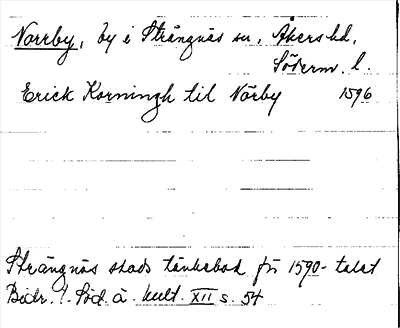 Norrby, by i Strängnäs sn, Åkers hd,
Söderm. l.
Erick Korningh til Nörby 1596
Strängnäs stads tänkebok för 1590-talet
Bidr. t. Söd. ä. kult. XII s. 54